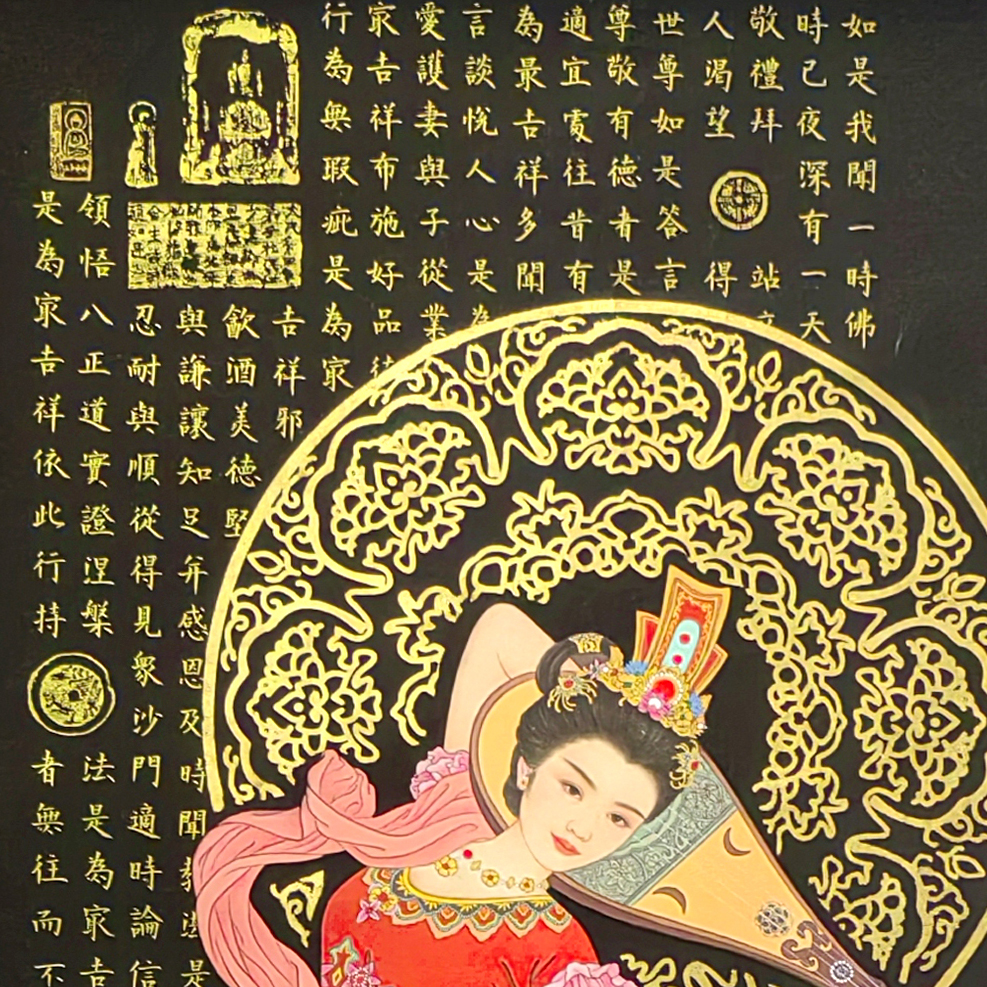 如是我聞一時佛
時已夜深有一天
敬禮拜 站
人渴望 得
世尊如是答言
尊敬有德者是
適宜處往昔有
為最吉祥多聞
言談悅人心是為
愛護妻與子從業
冣吉祥布施好品德
行為無瑕疵是為冣
吉祥邪
飲酒美德堅
與謙讓知足并感恩及時聞教法是
忍耐與順從得見眾沙門適時論信
領悟八正道實證涅槃 法是為冣吉
是為冣吉祥依此行持 者無往而不